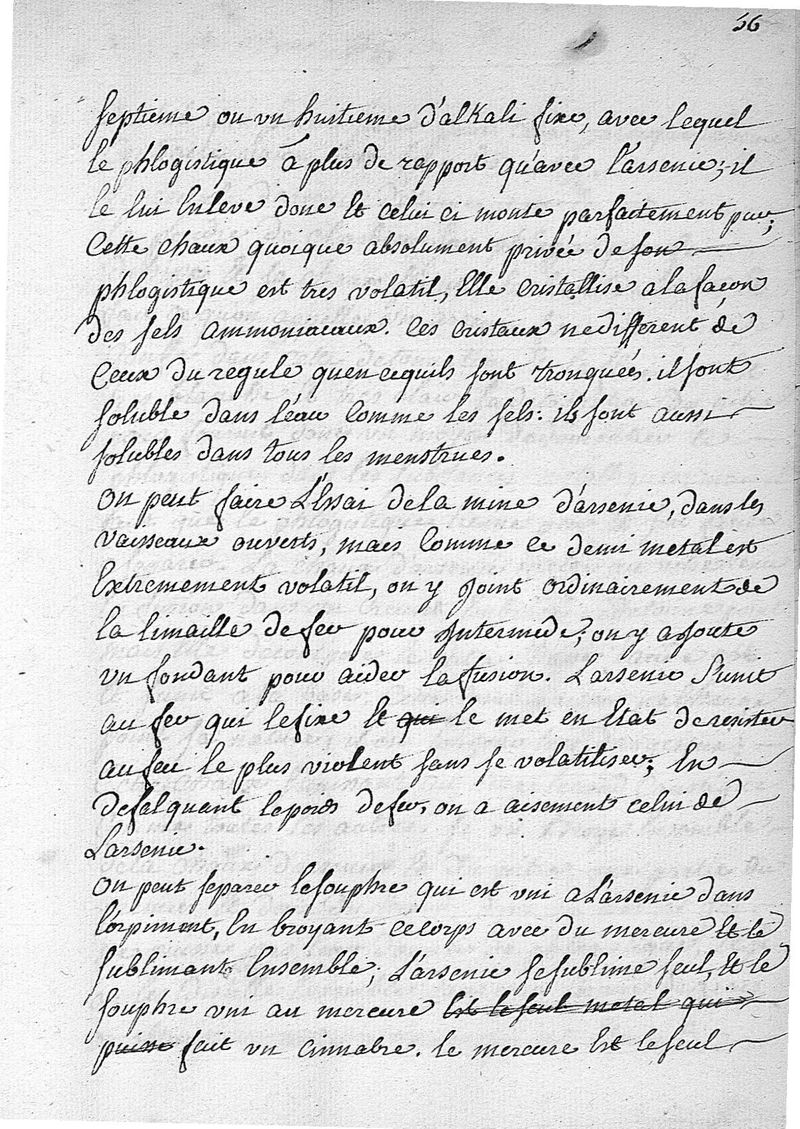 56
septieme ou vn huitieme d'alkali fixe, avec lequel
le phlogistique à plus de rapport qu'avec l'arsenic; il
le lui Enleve donc Et celui ci monte parfaitement pur;
Cette chaux quoique absolument privée de son
phlogistique est tres volatil, Elle cristallise a la façon
des sels ammoniacaux. Ces cristaux ne different de
Ceux du regule qu'en ce quils sont tronquées. il sont
soluble dans l'eau Comme les sels: ils sont aussi
solubles dans tous les menstrues.
On peut faire L'Essai de la mine d'arsenic, dans les
vaisseaux ouverts, mais Comme ce demi metal est
Extremement volatil, on y joint ordinairement de
la limaille de fer pour Intermede; on y ajoute
vn fondant pour aider la fusion. L'arsenic s'unit
au fer qui le fixe Et qui le met en Etat de resister
au feu le plus violent sans se volatiliser; En
defalquant le poids de fer, on a aisement celui de
L'arsenic.
On peut separer le souphre qui est vni a L'arsenic dans
l'orpiment, En broyant ce corps avec du mercure Et le
sublimant Ensemble; L'arsenic se sublime seul, Et le
souphre vni au mercure Est le seul metal qui
puisse fait vn Cinnabre. le mercure Est le seul